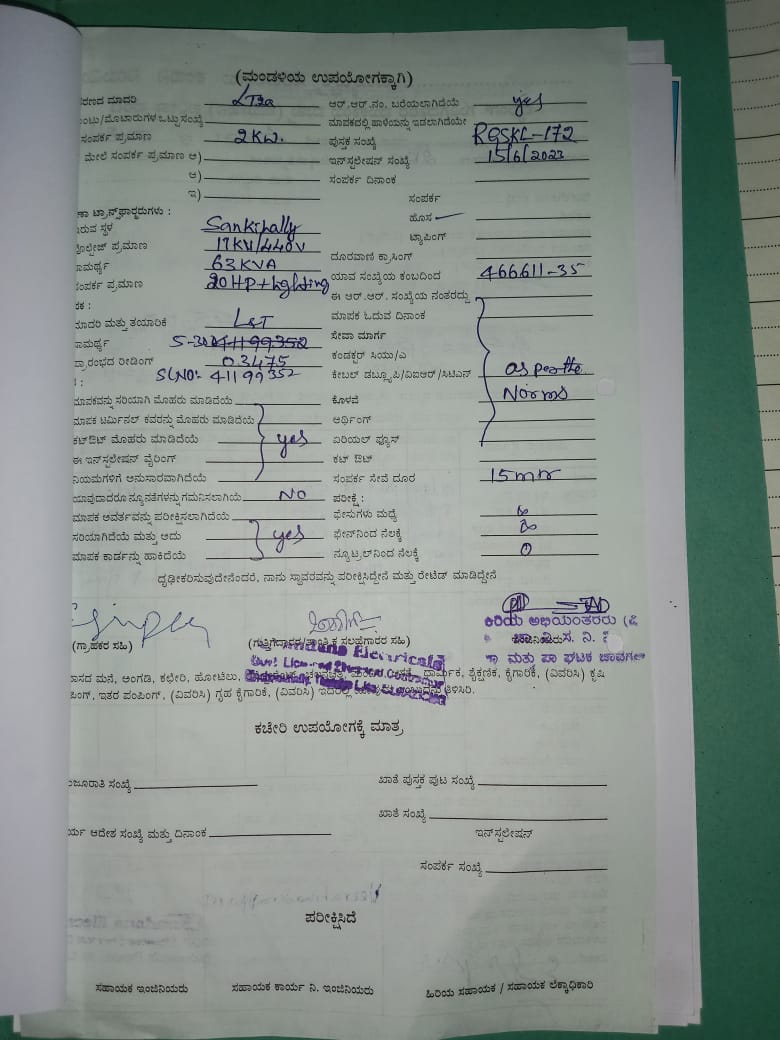 (ಮಂಡಳಿಯ ಉಪಯೋಗಕ್ಕಾಗಿ)
ರಣದ ಮಾದರಿ LT2a ಆರ್.ಆರ್.ನಂ. ಬರೆಯಲಾಗಿದೆಯೆ yes
ಂಟು/ಮೊಟಾರುಗಳ ಒಟ್ಟು ಸಂಖ್ಯೆ ಮಾಪಕದಲ್ಲಿ ಹಾಳೆಯನ್ನು ಇಡಲಾಗಿದೆಯೇ
ಸಂಪರ್ಕ ಪ್ರಮಾಣ 2KW. ಪುಸ್ತಕ ಸಂಖ್ಯೆ RGSKL-172
ಮೇಲೆ ಸಂಪರ್ಕ ಪ್ರಮಾಣ ಅ) ಇನ್‌ಸ್ಟಲೇಷನ್ ಸಂಖ್ಯೆ 15/6/2023
ಆ) ಸಂಪರ್ಕ ದಿನಾಂಕ
ಇ) ಸಂಪರ್ಕ
ಣಾ ಟ್ರಾನ್ಸ್‌ಫಾರ್‍ಮರುಗಳು : ಹೊಸ
ಇರುವ ಸ್ಥಳ Sankihally ಟ್ಯಾಪಿಂಗ್
ವೋಲ್ಟೇಜ್ ಪ್ರಮಾಣ 11KV/440V
ಾಮರ್ಥ್ಯ 63KVA ದೂರವಾಣಿ ಕ್ರಾಸಿಂಗ್
ಸಂಪರ್ಕ ಪ್ರಮಾಣ 20HP+Lighting ಯಾವ ಸಂಖ್ಯೆಯ ಕಂಬದಿಂದ 466611-35
ಈ ಆರ್.ಆರ್. ಸಂಖ್ಯೆಯ ನಂತರದ್ದು
ಮಾದರಿ ಮತ್ತು ತಯಾರಿಕೆ L&T ಮಾಪಕ ಓದುವ ದಿನಾಂಕ
ಾಮರ್ಥ್ಯ 5-30 41199352 ಸೇವಾ ಮಾರ್ಗ
ಪ್ರಾರಂಭದ ರೀಡಿಂಗ್ 03475 ಕಂಡಕ್ಟರ್ ಸಿಯು/ಎ
SLNO:- 41199352 ಕೇಬಲ್ ಡಬ್ಲ್ಯೂಪಿ/ವಿಐಆರ್/ಸಿಟಿಎಸ್ as per the
ಮಾಪಕವನ್ನು ಸರಿಯಾಗಿ ಮೊಹರು ಮಾಡಿದೆಯೆ ಕೊಳವೆ Norms
ಮಾಪಕ ಟರ್ಮಿನಲ್ ಕವರನ್ನು ಮೊಹರು ಮಾಡಿದೆಯೆ ಆರ್ಥಿಂಗ್
ಕಟ್‌ಔಟ್ ಮೊಹರು ಮಾಡಿದೆಯೆ yes ಏರಿಯಲ್ ಫ್ಯೂಸ್
ಈ ಇನ್‌ಸ್ಟಲೇಷನ್ ವೈರಿಂಗ್ ಕಟ್ ಔಟ್
ನಿಯಮಗಳಿಗೆ ಅನುಸಾರವಾಗಿದೆಯೆ ಸಂಪರ್ಕ ಸೇವೆ ದೂರ 15mtr
ಯಾವುದಾದರೂ ನ್ಯೂನತೆಗಳನ್ನು ಗಮನಿಸಲಾಗಿಯೆ NO ಪರೀಕ್ಷೆ :
ಮಾಪಕ ಆವರ್ತವನ್ನು ಪರೀಕ್ಷಿಸಲಾಗಿದೆಯೆ ಫೇಸುಗಳು ಮಧ್ಯೆ ∞
ಸರಿಯಾಗಿದೆಯೆ ಮತ್ತು ಅದು yes ಫೇಸ್‌ನಿಂದ ನೆಲಕ್ಕೆ ∞
ಮಾಪಕ ಕಾರ್ಡನ್ನು ಹಾಕಿದೆಯೆ ನ್ಯೂಟ್ರಲ್‌ನಿಂದ ನೆಲಕ್ಕೆ 0
ದೃಢೀಕರಿಸುವುದೇನೆಂದರೆ, ನಾನು ಸ್ಥಾವರವನ್ನು ಪರೀಕ್ಷಿಸಿದ್ದೇನೆ ಮತ್ತು ರೇಟೆಡ್ ಮಾಡಿದ್ದೇನೆ
ಕಿರಿಯ ಅಭಿಯಂತರರು
(ಗ್ರಾಹಕರ ಸಹಿ) (ಗುತ್ತಿಗೆದಾರರ/ತಾಂತ್ರಿಕ ಸಲಹೆಗಾರರ ಸಹಿ)
Electricals
ಮತ್ತು ಪಾ ಘಟಕ
ಾಸದ ಮನೆ, ಅಂಗಡಿ, ಕಛೇರಿ, ಹೋಟೆಲು, ಧಾರ್ಮಿಕ, ಶೈಕ್ಷಣಿಕ, ಕೈಗಾರಿಕೆ, (ವಿವರಿಸಿ) ಕೃಷಿ
ಪಿಂಗ್, ಇತರ ಪಂಪಿಂಗ್, (ವಿವರಿಸಿ) ಗೃಹ ಕೈಗಾರಿಕೆ, (ವಿವರಿಸಿ) ತಿಳಿಸಿರಿ.
ಕಚೇರಿ ಉಪಯೋಗಕ್ಕೆ ಮಾತ್ರ
ಂಜೂರಾತಿ ಸಂಖ್ಯೆ ಖಾತೆ ಪುಸ್ತಕ ಪುಟ ಸಂಖ್ಯೆ
ಖಾತೆ ಸಂಖ್ಯೆ
ರ್ಯ ಆದೇಶ ಸಂಖ್ಯೆ ಮತ್ತು ದಿನಾಂಕ ಇನ್‌ಸ್ಟಲೇಷನ್
ಸಂಪರ್ಕ ಸಂಖ್ಯೆ
ಪರೀಕ್ಷಿಸಿದೆ
ಸಹಾಯಕ ಇಂಜಿನಿಯರು ಸಹಾಯಕ ಕಾರ್ಯ ನಿ. ಇಂಜಿನಿಯರು ಹಿರಿಯ ಸಹಾಯಕ / ಸಹಾಯಕ ಲೆಕ್ಕಾಧಿಕಾರಿ